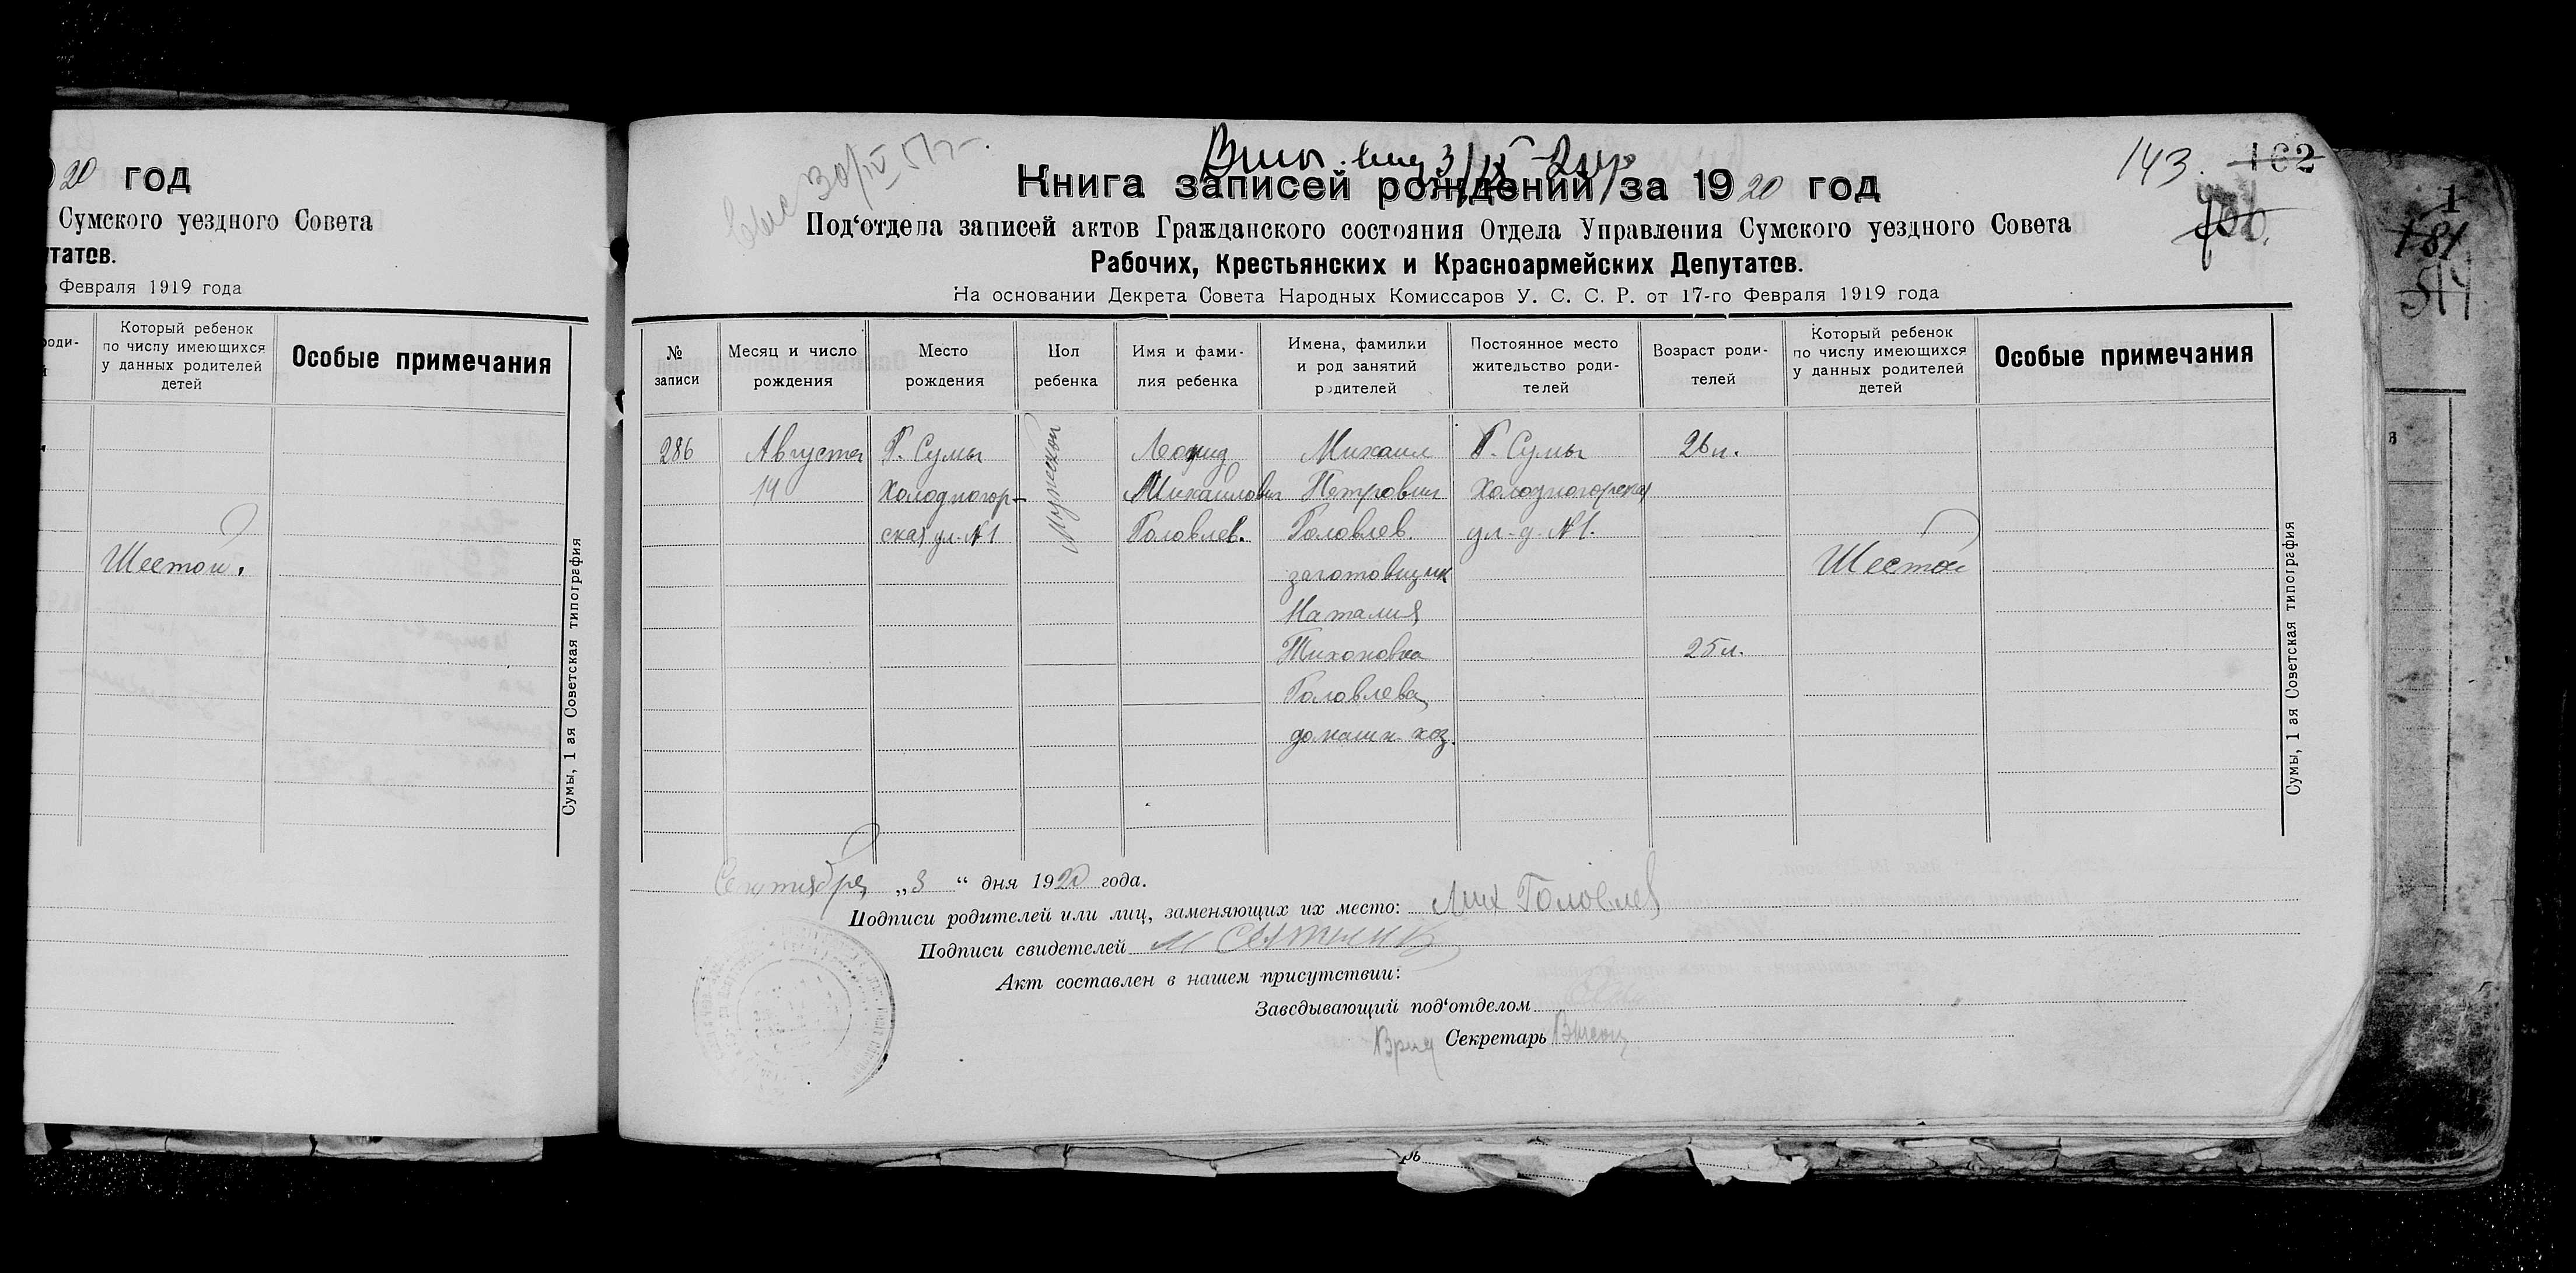 20 год
Сумского уездного Совета
татов.
Февраля 1919 года
роди-
й
Который ребенок
по числу имеющихся
у данных родителей
детей
Особые примечания
Шестой.
Сумы, 1 ая Советская типография
30/IV 51 г.
3/IX
143. 162
Книга записей рождений за 1920 год
Под‘отдела записей актов Гражданского состояния Отдела Управления Сумского уездного Совета
Рабочих, Крестьянских и Красноармейских Депутатов.
На основании Декрета Совета Народных Комиссаров У. С. С. Р. от 17-го Февраля 1919 года
№
записи
Месяц и число
рождения
Место
рождения
Пол
ребенка
Имя и фами-
лия ребенка
Имена, фамилии
и род занятий
родителей
Постоянное место
жительство роди-
телей
Возраст роди-
телей
Который ребенок
по числу имеющихся
у данных родителей
детей
Особые примечания
286
Августа
14
Г. Сумы
Холодногор-
ская ул. №1
Мужеской
Леонид
Михаилович
Головлев.
Михаил
Петрович
Головлев.
заготовщик
Наталия
Тихоновна
Головлева
домашн. хоз.
Г. Сумы
Холодногорская
ул. д. №1.
26 л.
25 л.
Шестой
Сумы, 1 ая Советская типография
Сентября „3“ дня 1920 года.
Подписи родителей или лиц, заменяющих их место: Мих Головлев
Подписи свидетелей
Акт составлен в нашем присутствии:
Заведывающий под‘отделом
Врид Секретарь
1
181